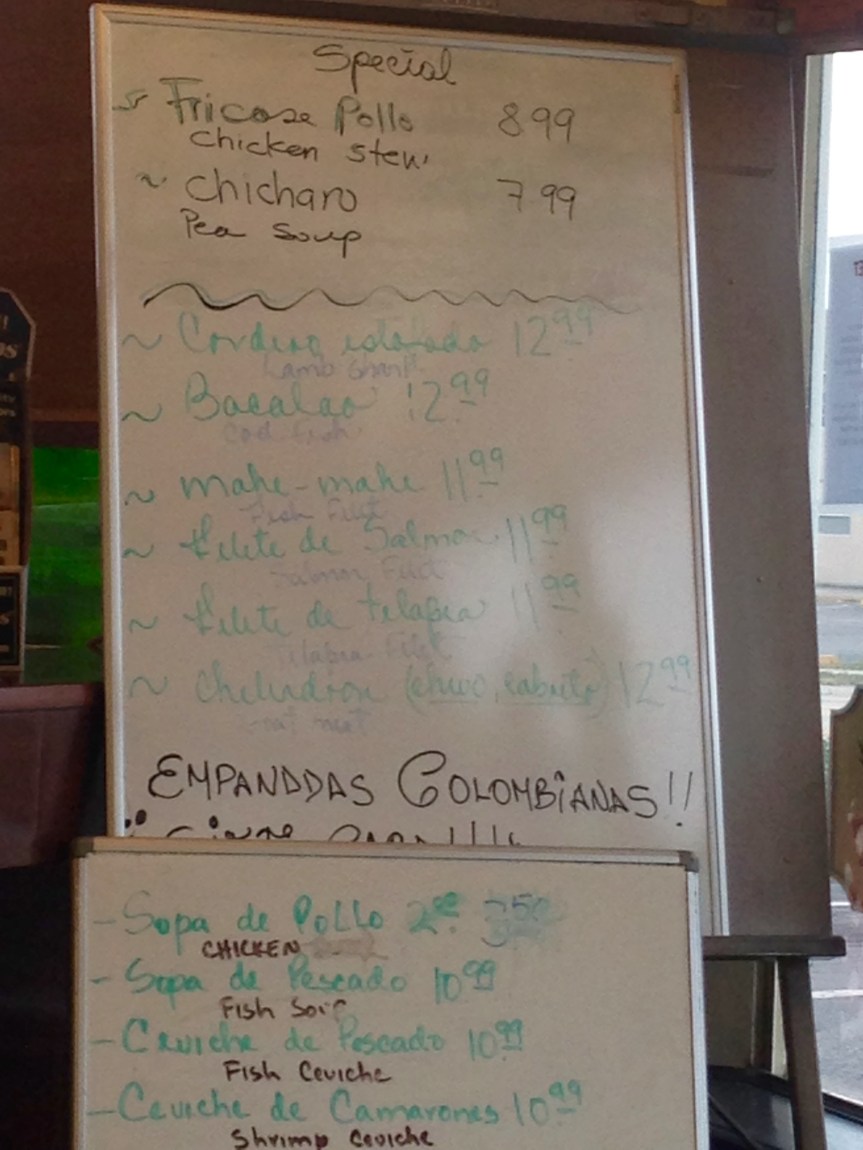 Special
Fricase Pollo 8 99
Chicken stew
~ chicharo 7 99
Pea Soup
~ Cordero 12 99
Lamb Shank
~ Bacalao 12 99
Cod Fish
~ mahe-mahe 11 99
Fish Filet
~ filete de Salmon 11 99
Salmon Filet
~ filete de telapia 11 99
Tilapia Filet
~ (chivo, cabrito) 12 99
EMPANDDAS COLOMBIANAS!!
- Sopa de Pollo 350
CHICKEN
- Sopa de Pescado 10 99
Fish Soup
- Ceviche de Pescado 10 99
Fish Ceviche
- Ceviche de Camarones 10 99
Shrimp Ceviche